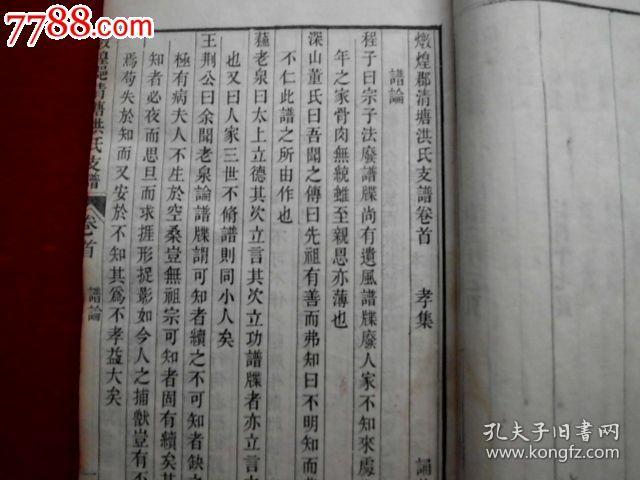 7788.com
燉煌郡清塘洪氏支譜卷首 孝集
譜論
程子曰宗子法廢譜牒尚有遺風譜牒廢人家不知來處
年之家骨肉無統雖至親恩亦薄也
深山董氏曰吾聞之傳曰先祖有善而弗知曰不明知而
不仁此譜之所由作也
蘓老泉曰太上立德其次立言其次立功譜牒者亦立言
也又曰人家三世不脩譜則同小人矣
王荆公曰余聞老泉論譜牒謂可知者續之不可知者缺之
極有病夫人不生於空桑豈無祖宗可知者固有續矣
知者必夜而思旦而求捱形捉影如今人之捕獸豈有不
焉苟失於知而又安於不知其為不孝益大矣
煌郡清塘洪氏支譜 卷首 譜論
孔夫子旧书网
www.kongfz.com